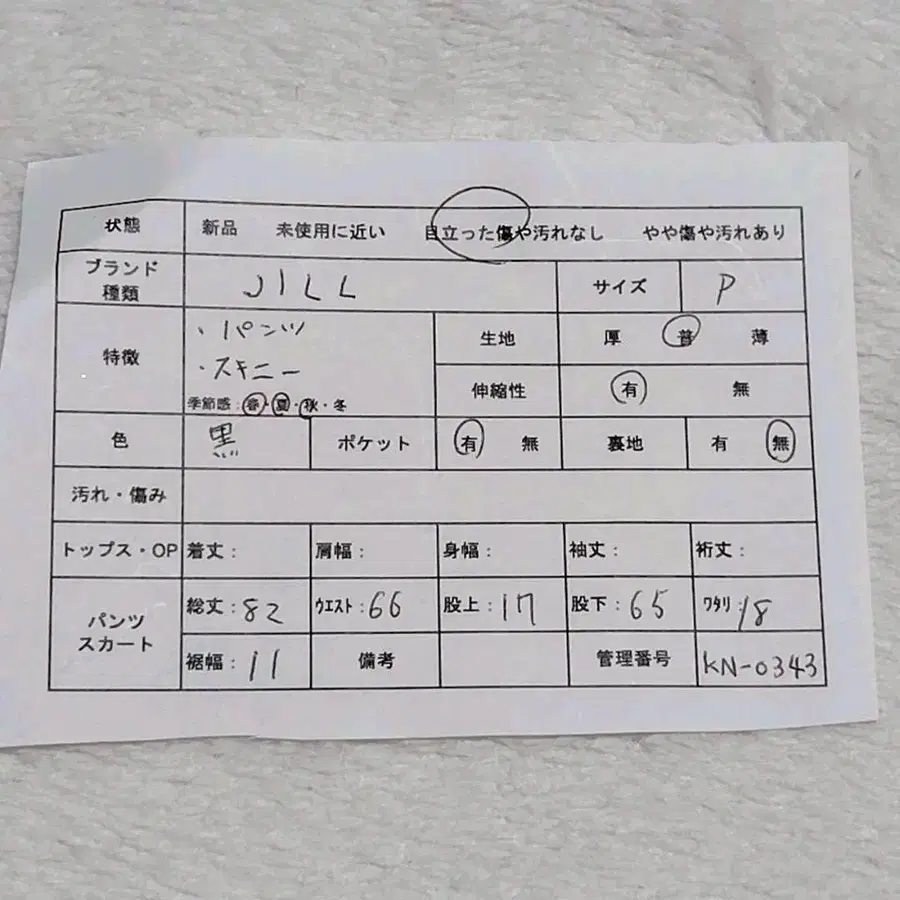 状態 新品 未使用に近い 目立った傷や汚れなし やや傷や汚れあり
ブランド
種類 JILL サイズ P
特徴 ・パンツ
・スキニー
季節感:春・夏・秋・冬
生地 厚 普 薄
伸縮性 有 無
色 黒 ポケット 有 無 裏地 有 無
汚れ・傷み
トップス・OP 着丈: 肩幅: 身幅: 袖丈: 裄丈:
パンツ
スカート
総丈:82 ウエスト:66 股上:17 股下:65 ワタリ:18
裾幅:11 備考 管理番号 KN-0343